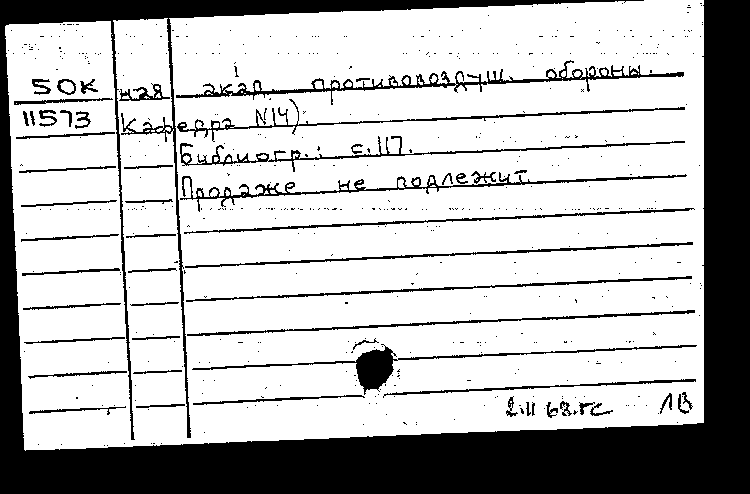 50К ная акад. противовоздуш. обороны.
11573 Кафедра N14).
Библиогр.: с.117.
Продаже не подлежит
2.II 68. ГС 1В